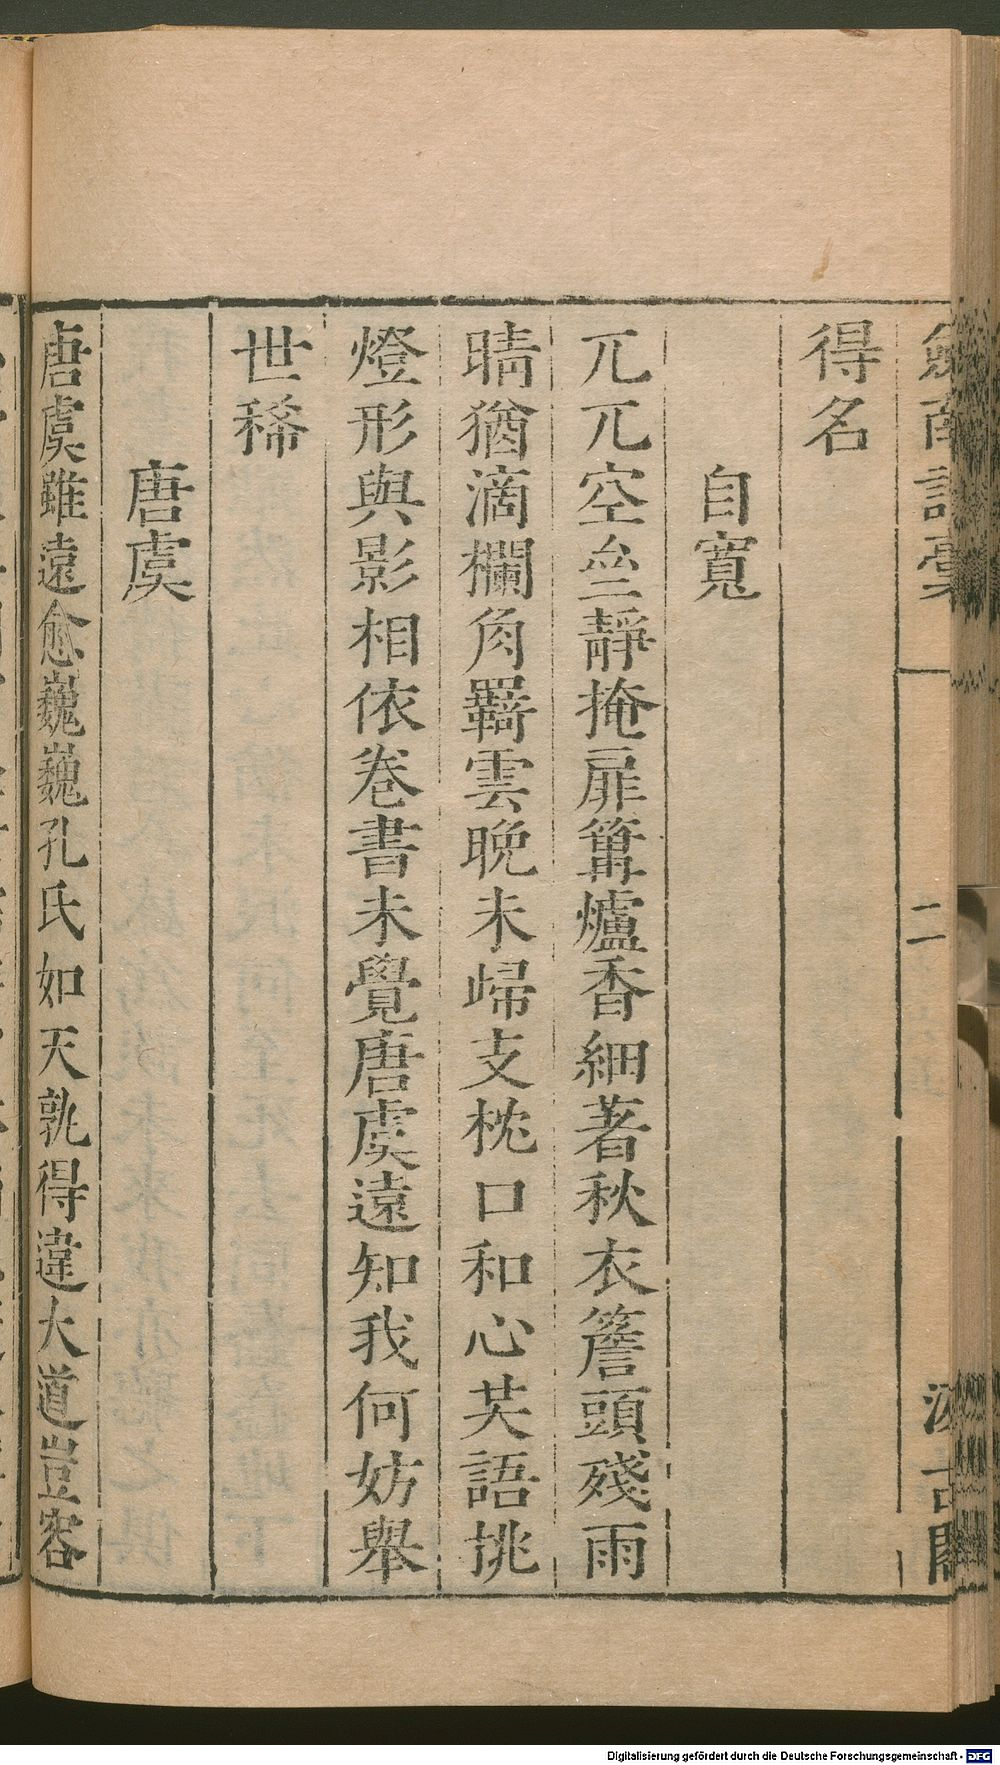 劍南詩稾
二
汲古閣
得名
自寬
兀兀空堂靜掩扉篝爐香細著秋衣簷頭殘雨
晴猶滴欄角羇雲晚未歸支枕口和心共語挑
燈形與影相依卷書未覺唐虞遠知我何妨舉
世稀
唐虞
唐虞雖遠愈巍巍孔氏如天孰得違大道豈容
Digitalisierung gefördert durch die Deutsche Forschungsgemeinschaft - DFG